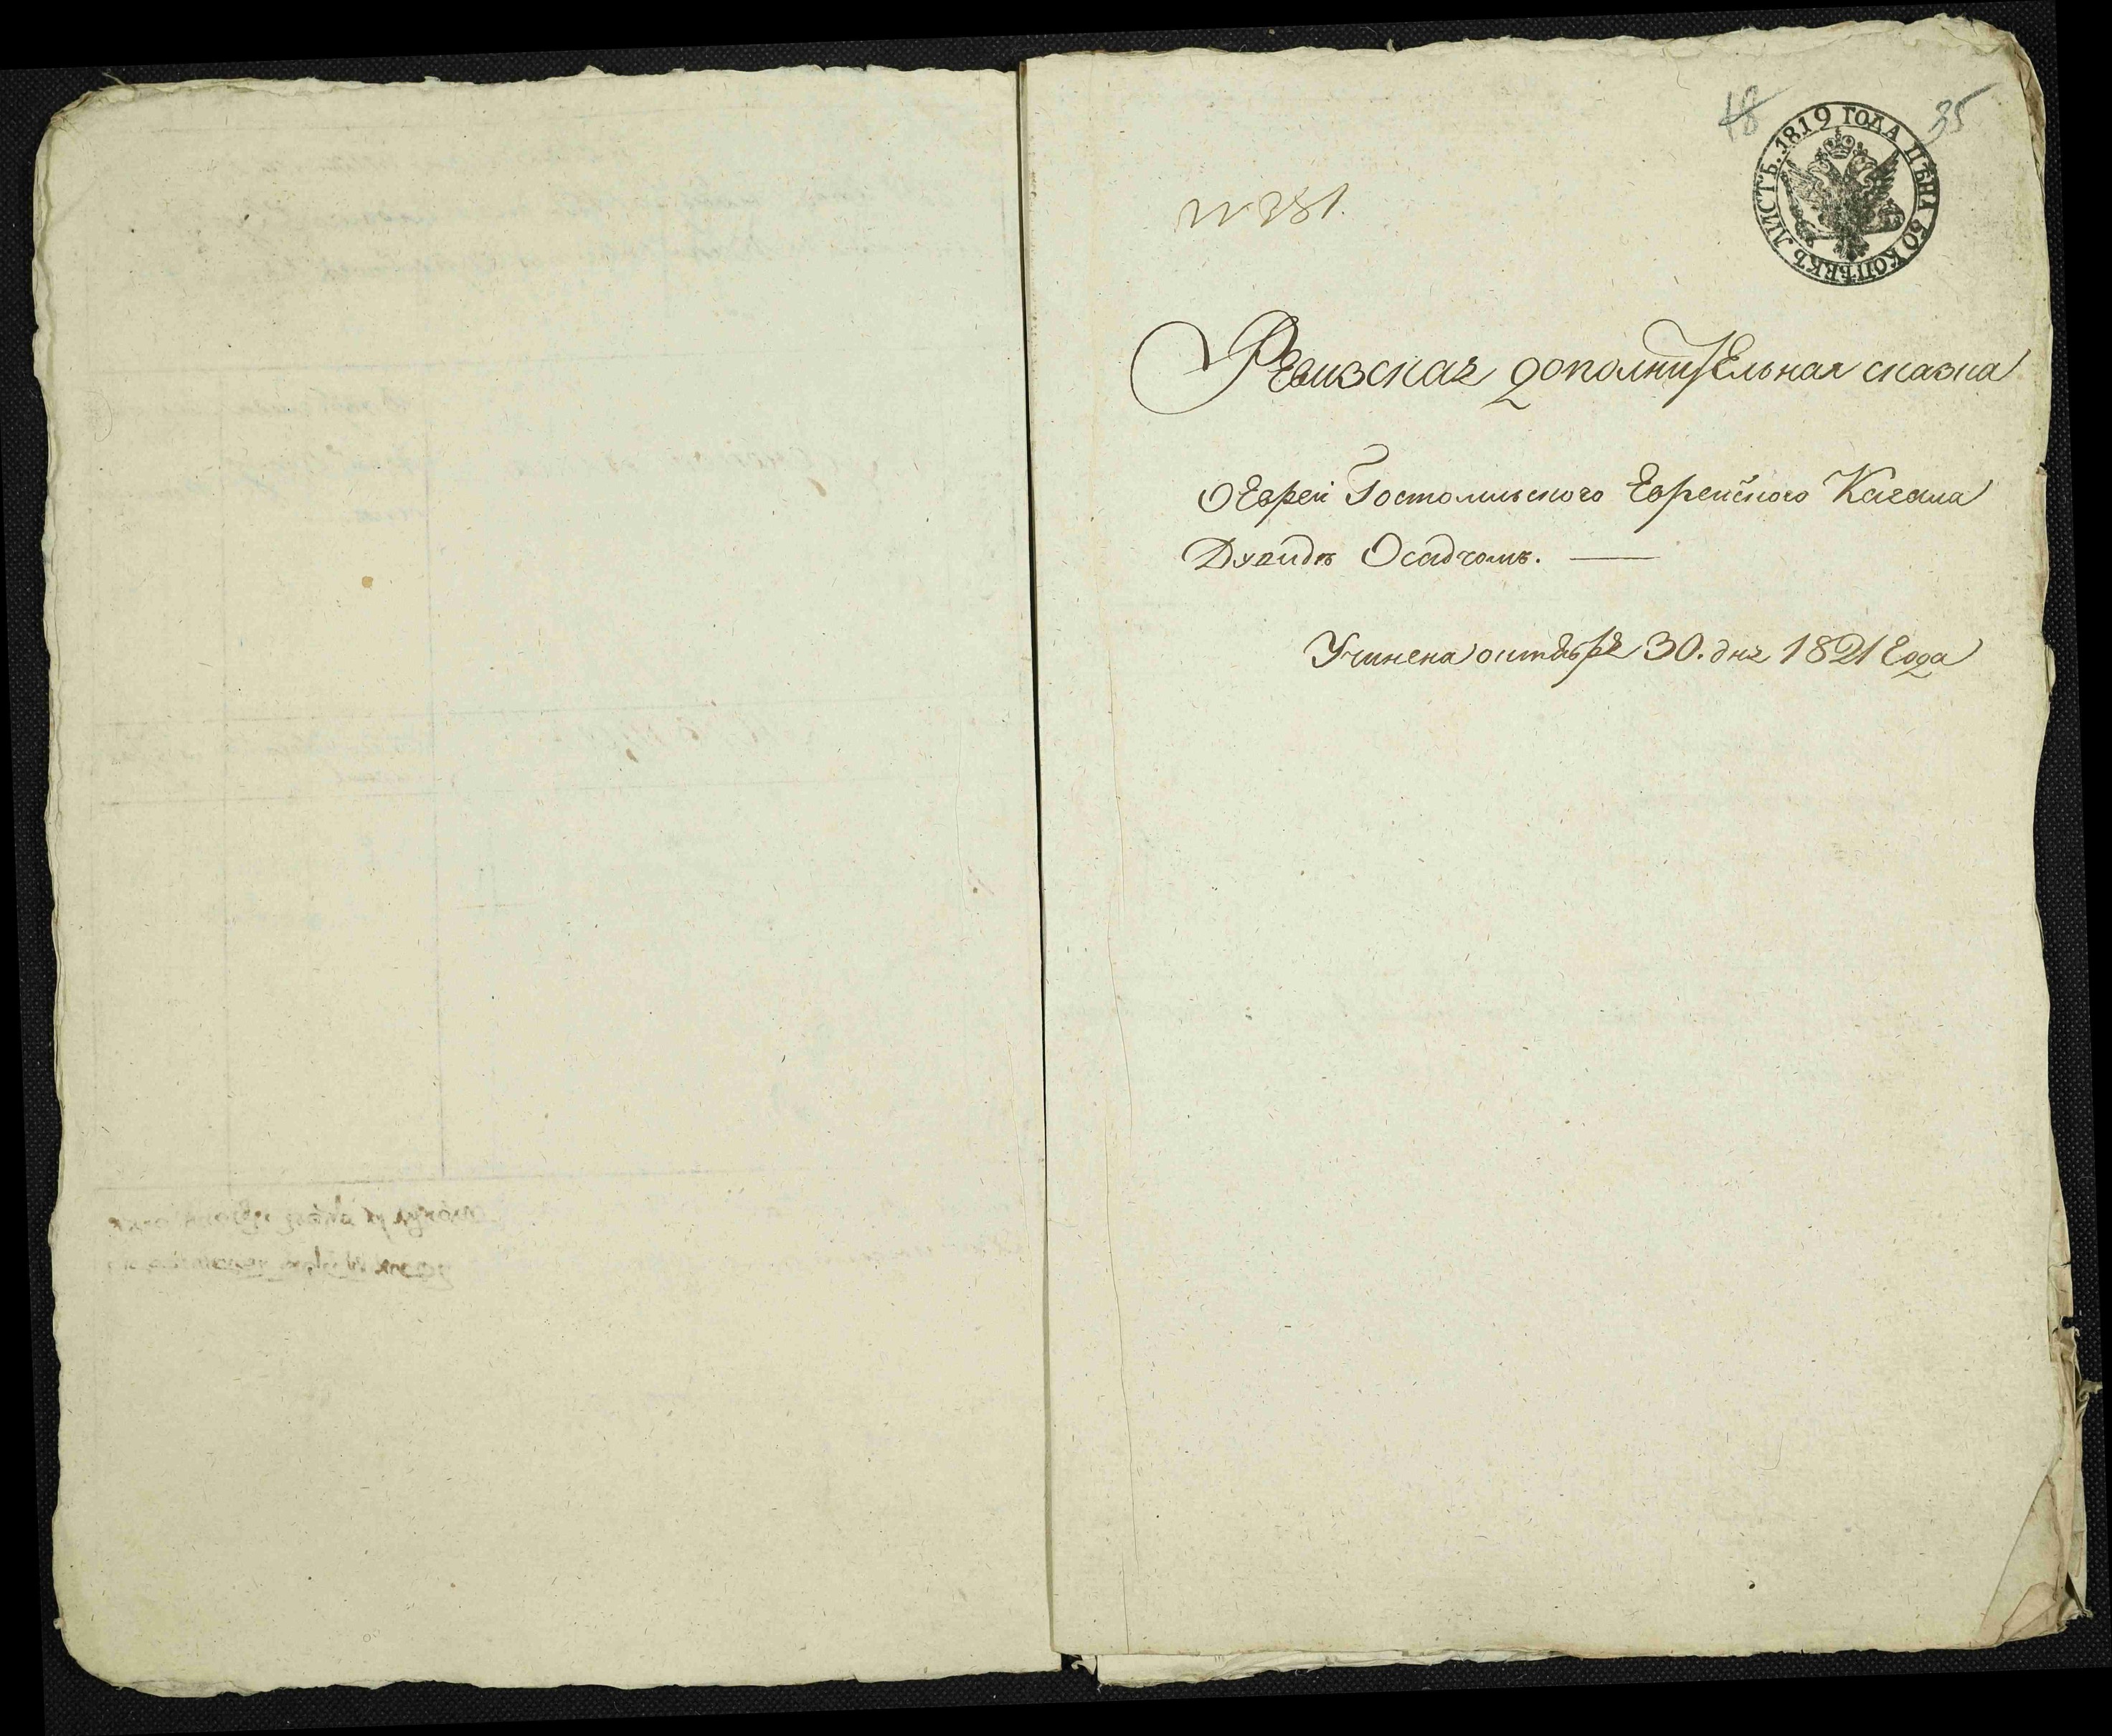 48 35
ЛИСТЪ. 1819 ГОДА ЦѢНА 50 КОПѢЕКЪ
№ 281.
Ревизская дополнительная сказка
О Еврей Гостомльского Еврейского Кагала
Дувидѣ Осадчомъ.
Учинена октября 30. дня 1821 года